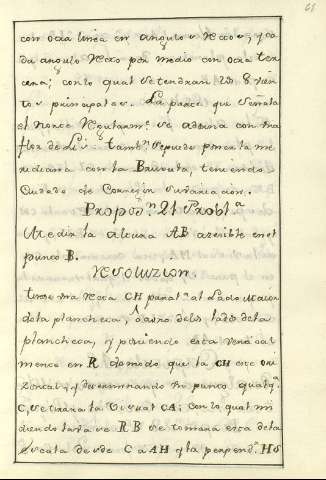 61
con otra linea en angulos Rectos, y ca
da angulo Recto por medio con otra ter
cera; con lo qual se tendran los 8 vien
tos principales. La parte que señala
el Norte Regularmte. se adorna con una
flor de Lis. tambn. se puede poner la me
ridiana con la Bruxula, teniendo
Cuidado de Corregir su variacion.
Proposn. 21 Problª
Medir la altura AB accesible en el
punto B.
Resoluzion.
tirese una Recta CH paralª. al Lado Maior
de la plancheta, ó à uno de los lados de la
plancheta, y poniendo esta vertical
mente en R de modo que la CH esté ori
zontal, y determinando un punto qualqª.
C, se tirará la visual CA; con lo qual mi
diendo la vase RB se tomara esta de la
Escala desde C à AH y la perpendr. HO